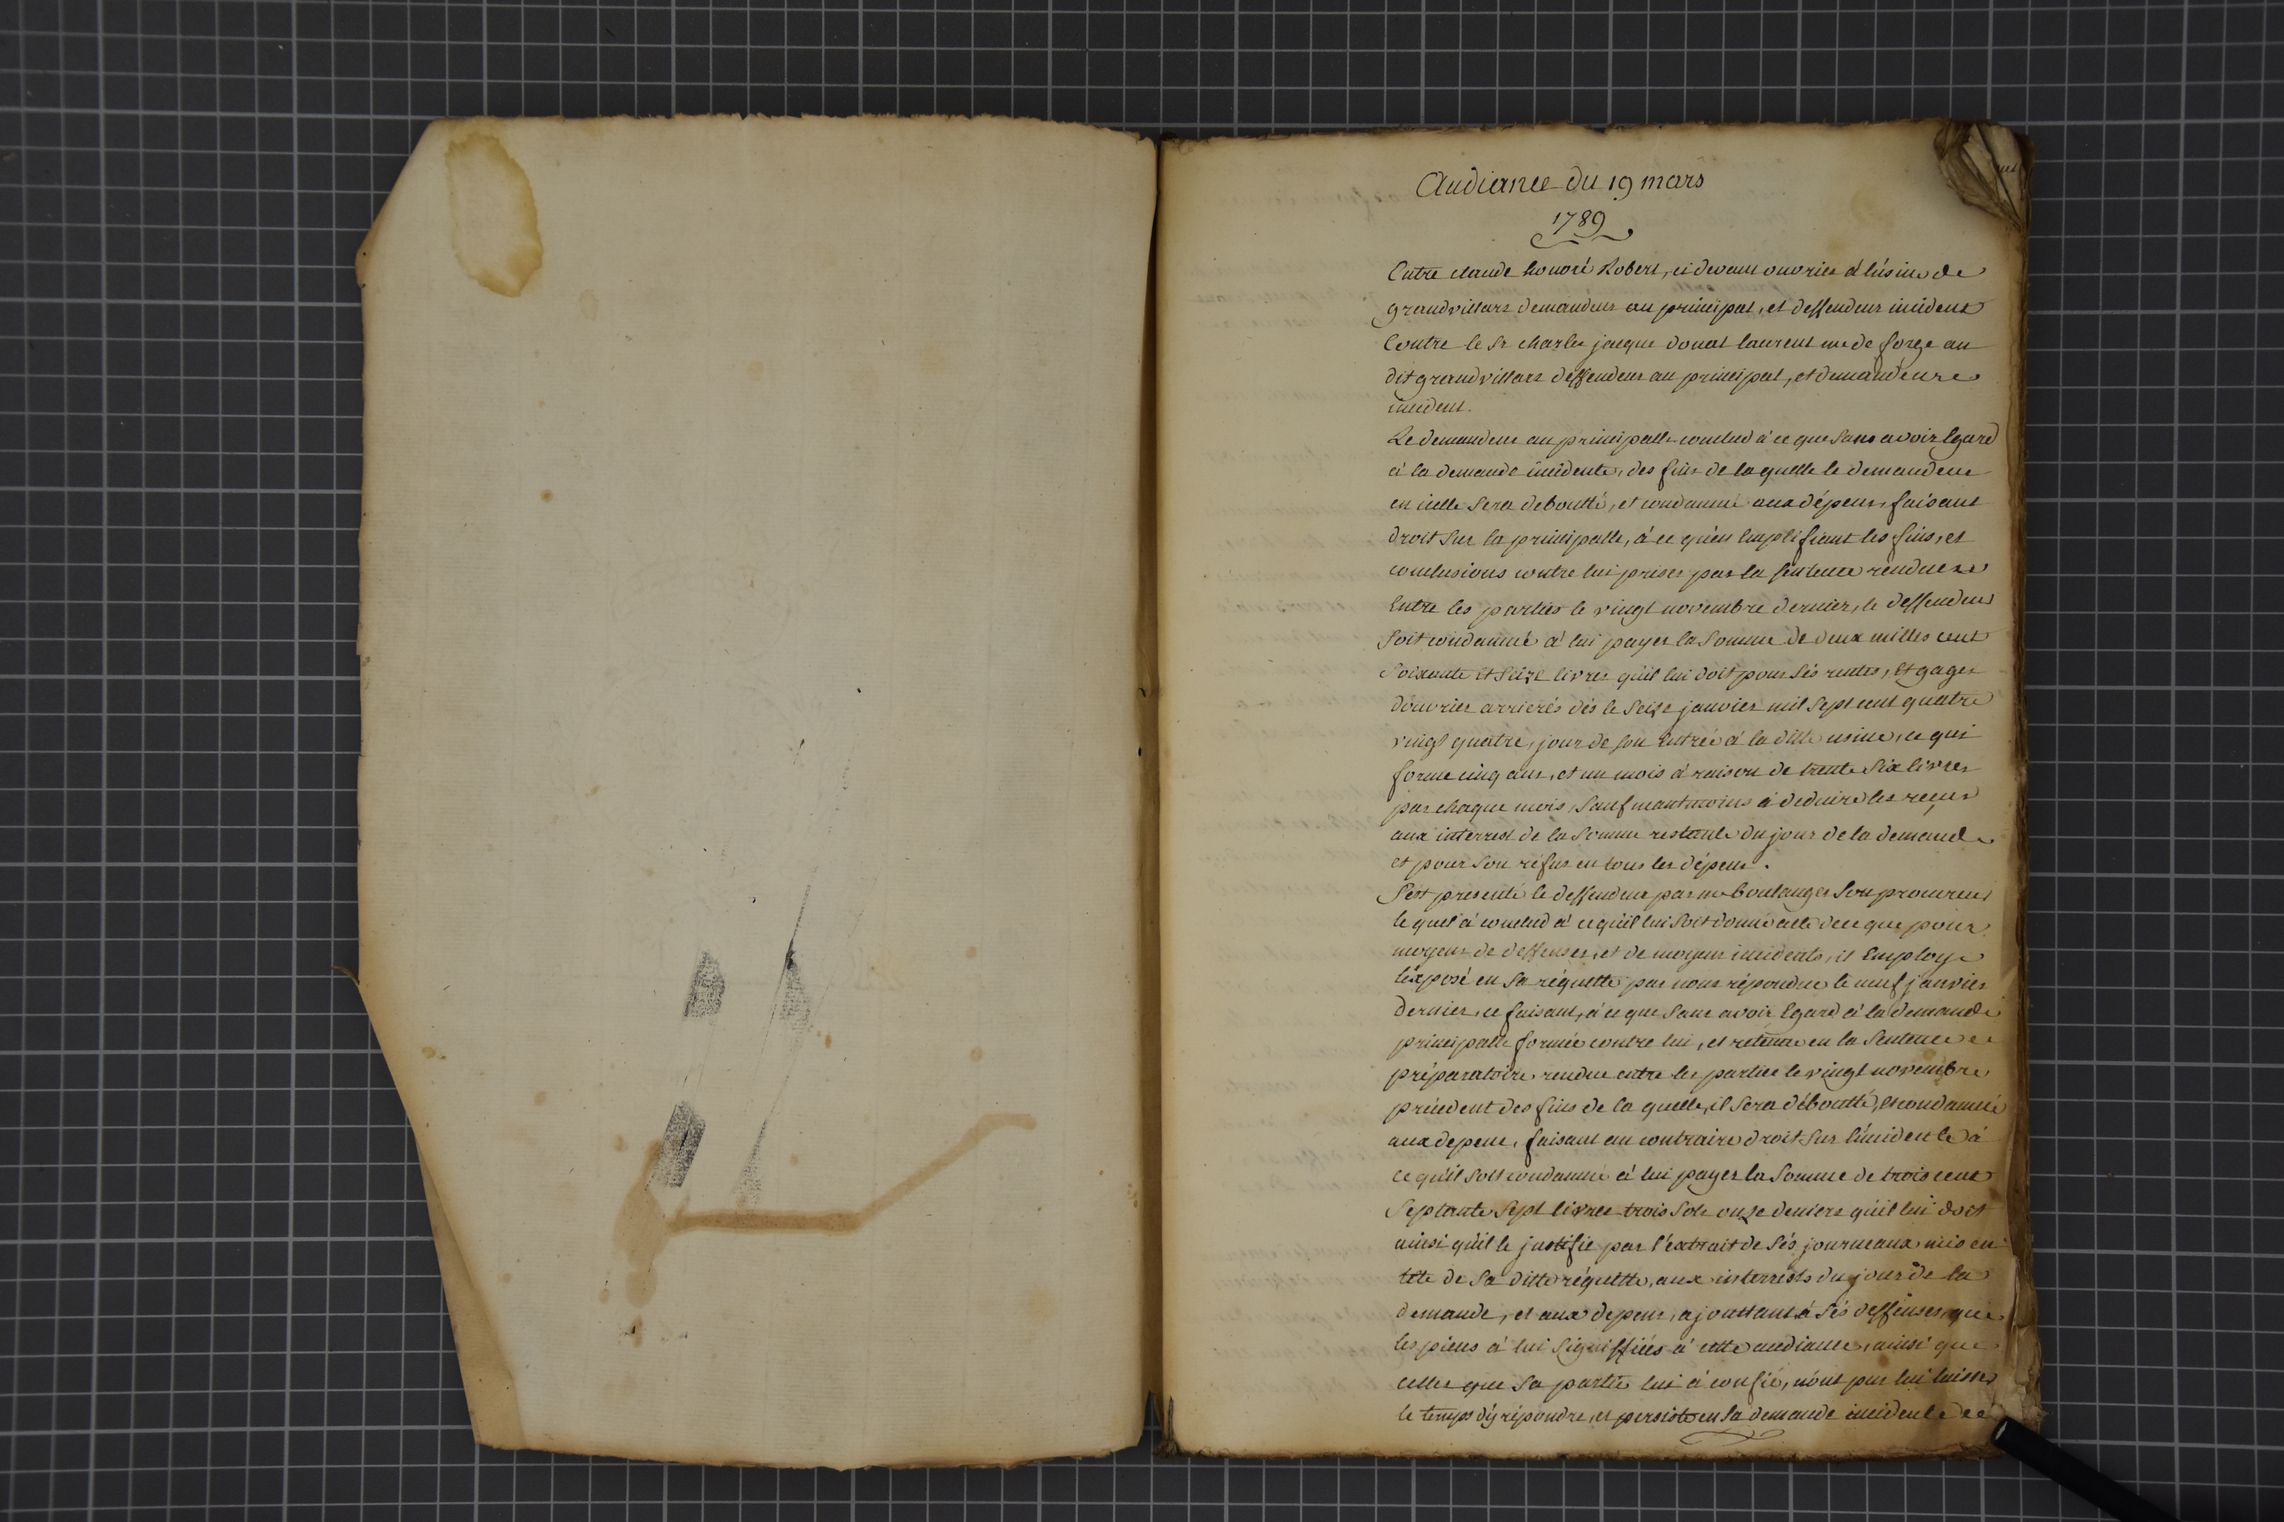 Audiance du 19 mars
1789
Entre claude honoré Robert, ci devant ouvrier à l'úsine de
grandvillars demandeur au principal, et deffendeur incident
Contre le Sr charle jacque donat laurent me de forge au
dit grandvillars deffendeur au principal, et demandeure
incident.
Le demandeur au principalle conclud à ce que sans avoir Egard
à la demande incidente, des fins de la quelle le demandeur
en icelle sera deboutté, et condamné aux dépens, faisant
droit sur la principalle, à ce qu'en Emplifiant les fins, et
conclusions contre lui prises par la sentence rendue
Entre les parties le vingt novembre dernier, le deffendeur
soit condamné à lui payer la somme de deux milles cent
soixante et seize livres qu'il lui doit pour ses rentes, et gages
d'ouvrier arrierés dès le seize janvier mil sept cent quatre
vingt quatre, jour de son entrée à la ditte usine, ce qui
forme cinq ans, et un mois à raison de trente six livres
par chaque mois, sauf neantmoins à deduire les reçus
aux interrest de la somme restante du jour de la demande
et pour son réfus en tous les dépens.
S'est présenté le deffendeur par me boulanger son procureur
le quel à conclud à ce qu'il lui soit donné acte de ce que pour
moyens de deffenses, et de moyens incidents, il Employe
l'éxposé en sa réquette par nous répondue le neuf janvier
dernier, ce faisant, à ce que sans avoir Egard à la demande
principalle formée contre lui, et retenue en la sentence
préparatoire rendue entre les parties le vingt novembre
précedent des fins de la quelle, il sera déboutté, et condamné
aux depens, faisant au contraire droit sur l'incidente à
ce qu'il soit condamné à lui payer la somme de trois cent
septante sept livres trois sols onze deniers qu'il lui doit
ainsi qu'il le justifie par l'extrait de sés journeaux mis en
tête de sa ditte réquette, aux interrests du jour de la
demande, et aux depens, ajouttant à sés deffenses, que
les pieces à lui signiffiés à cette audiance, ainsi que
celles que sa partie lui à confié, n'ont pas lui laisser
le temps d'y répondre, et persiste en sa demande incidente